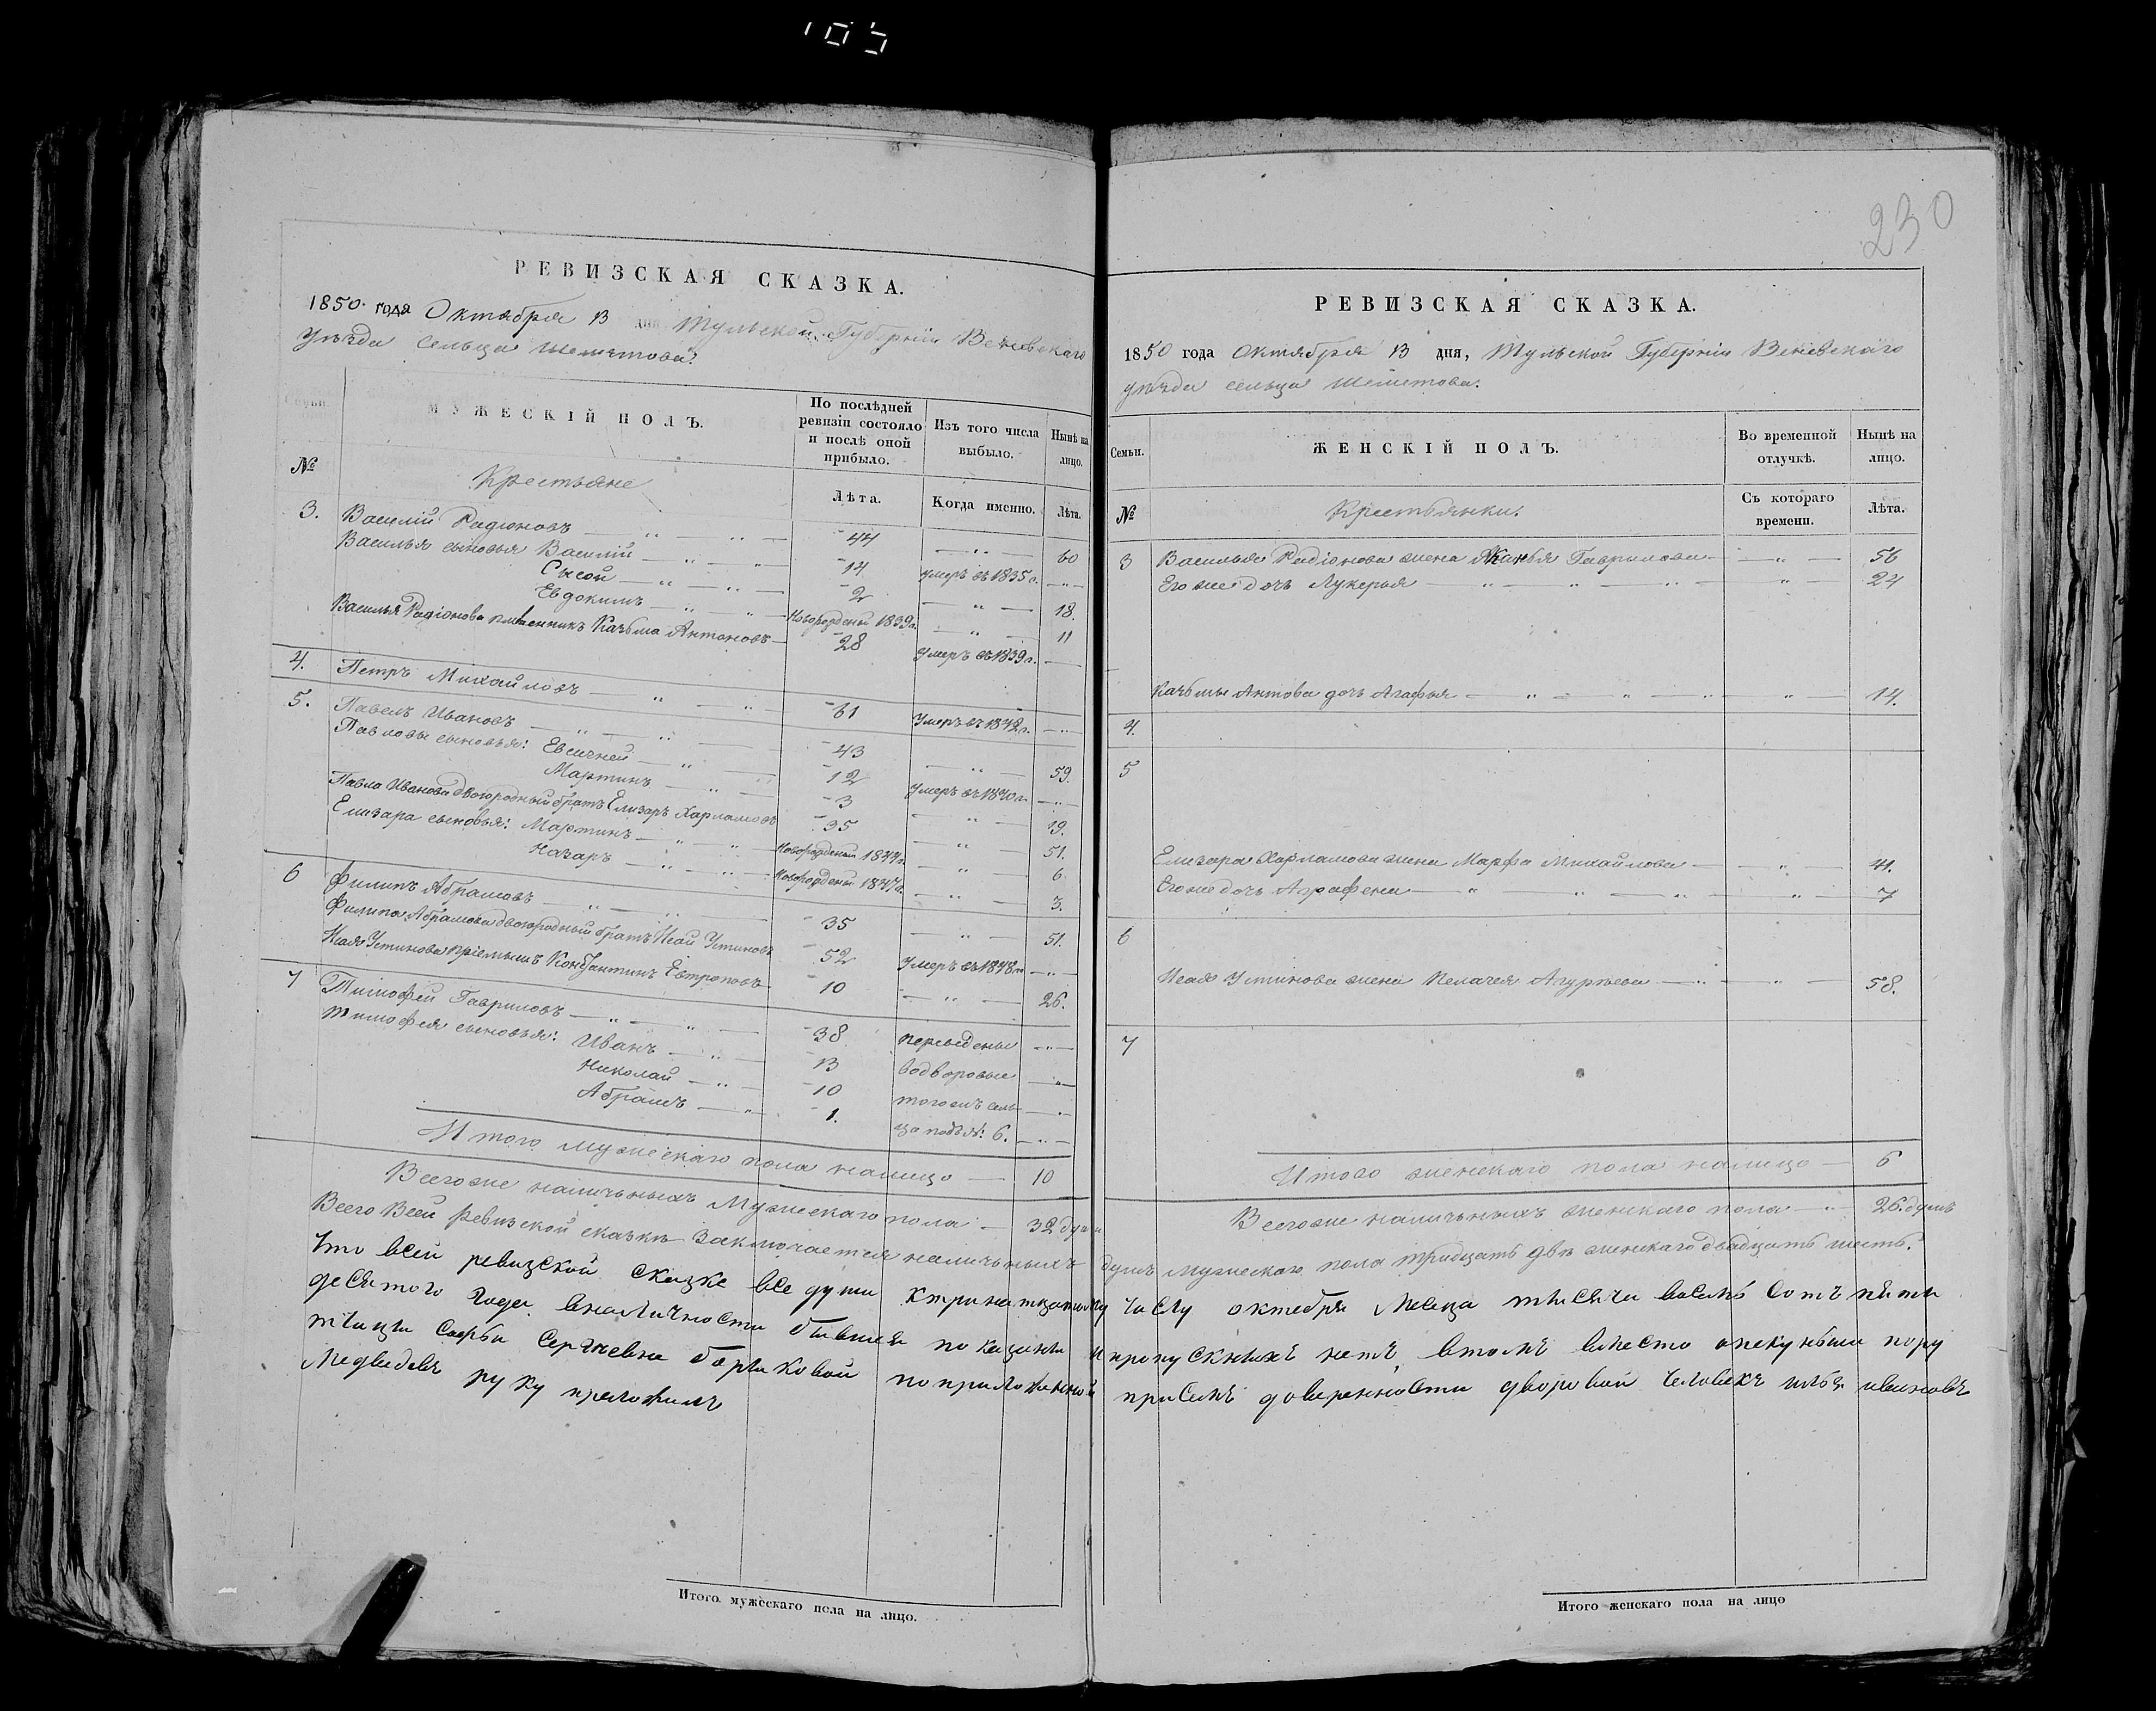 105
230
РЕВИЗСКАЯ СКАЗКА.
1850. года Октября 13 дня Тульской Губерніи Веневскаго
уѣзда сельца Шеметова.
Семьи.
МУЖЕСКІЙ ПОЛЪ.
По послѣдней ревизіи состояло и послѣ оной прибыло.
Изъ того числа выбыло.
Нынѣ на лицо.
№
Крестьяне
Лѣта.
Когда именно.
Лѣта.
3. Василій Радіоновъ — „ — „ — 44 — „ — 60
Василья сыновья Василій — „ — „ 14 умеръ въ 1835 г. — „ —
Сысой — „ — „ — 2 — „ — 18.
Евдокимъ — „ — „ — Новорожденый 1839 г. — „ — 11
Василья Радіонова племенникъ Качьма Антоновъ — 28 Умеръ въ 1839 г. —
4. Петръ Михайловъ — „ — „ — 61 Умеръ въ 1842 г. — „ —
5. Павелъ Ивановъ — „ — „ — 43 — „ — 59.
Павловы сыновья: Евсигней — „ — 12 Умеръ въ 1840 г. — „ —
Мартинъ — „ — 3 — „ — 19.
Павла Иванова двоюродный братъ Елизаръ Харламовъ 35 — „ — 51.
Елизара сыновья: Мартинъ — „ — „ — Новорожденый 1844 г. — „ — 6
Назаръ — „ — „ — Новорожденый 1847 г. — „ — 3.
6 Филипъ Абрамовъ — „ — „ — 35 — „ — 51.
Филипа Абрамова двоюродный братъ Исай Устиновъ 52 Умеръ въ 1848 г. — „ —
Исая Устинова пріемышъ Константинъ Евтроповъ 10 — „ — 26.
7 Тимофей Гавриловъ — „ — „ — 38 переведены — „ —
Тимофея сыновья: Иванъ — „ — 13 водворовые — „ —
Николай — „ — 10 тогожъ сель- — „ —
Абрамъ — „ — 1. ца подъ №: 6. — „ —
Итого мужескаго пола налицо — 10
Всегоже наличьныхъ Мужескаго пола — 32 души
РЕВИЗСКАЯ СКАЗКА.
1850 года Октября 13 дня, Тульской Губерніи Веневскаго
уѣзда сельца Шеметова.
Семьи.
ЖЕНСКІЙ ПОЛЪ.
Во временной отлучкѣ.
Нынѣ на лицо.
№
Крестьянки.
Съ котораго времени.
Лѣта.
3 Василья Радіонова жена Гаврилова — „ — 56
Его же дочь Лукерья — „ — „ — „ — 24
Качьмы Антова дочь Агафья — „ — „ — „ — 14.
4.
5
Елизара Харламова жена Марфа Михайлова — „ — 41.
Его же дочь Аграфена — „ — „ — „ — 7
6
Исая Устинова жена Пелагея Агурьева — „ — „ — 58.
7
Итого женскаго пола налицо — 6
Всегоже наличьныхъ женскаго пола — „ — 26. душъ
Всего Всей ревизской сказкѣ заключается наличьныхъ душъ мужескаго пола тридцать двѣ женскаго двадцать шесть.
Что всей ревизской сказке все души ктринатцатому числу октебря месеца тысеча васемь сотъ пяти
десятого года вналичности бывшея показаны ипропускныхъ нетъ, втомъ вместо опекуньши пору
тчицы Софьи Сергѣевны поприложенной присемъ доверенности дворовой человекъ илья ивановъ
Медведевъ руку преложилъ
Итого мужескаго пола на лицо.
Итого женскаго пола на лицо